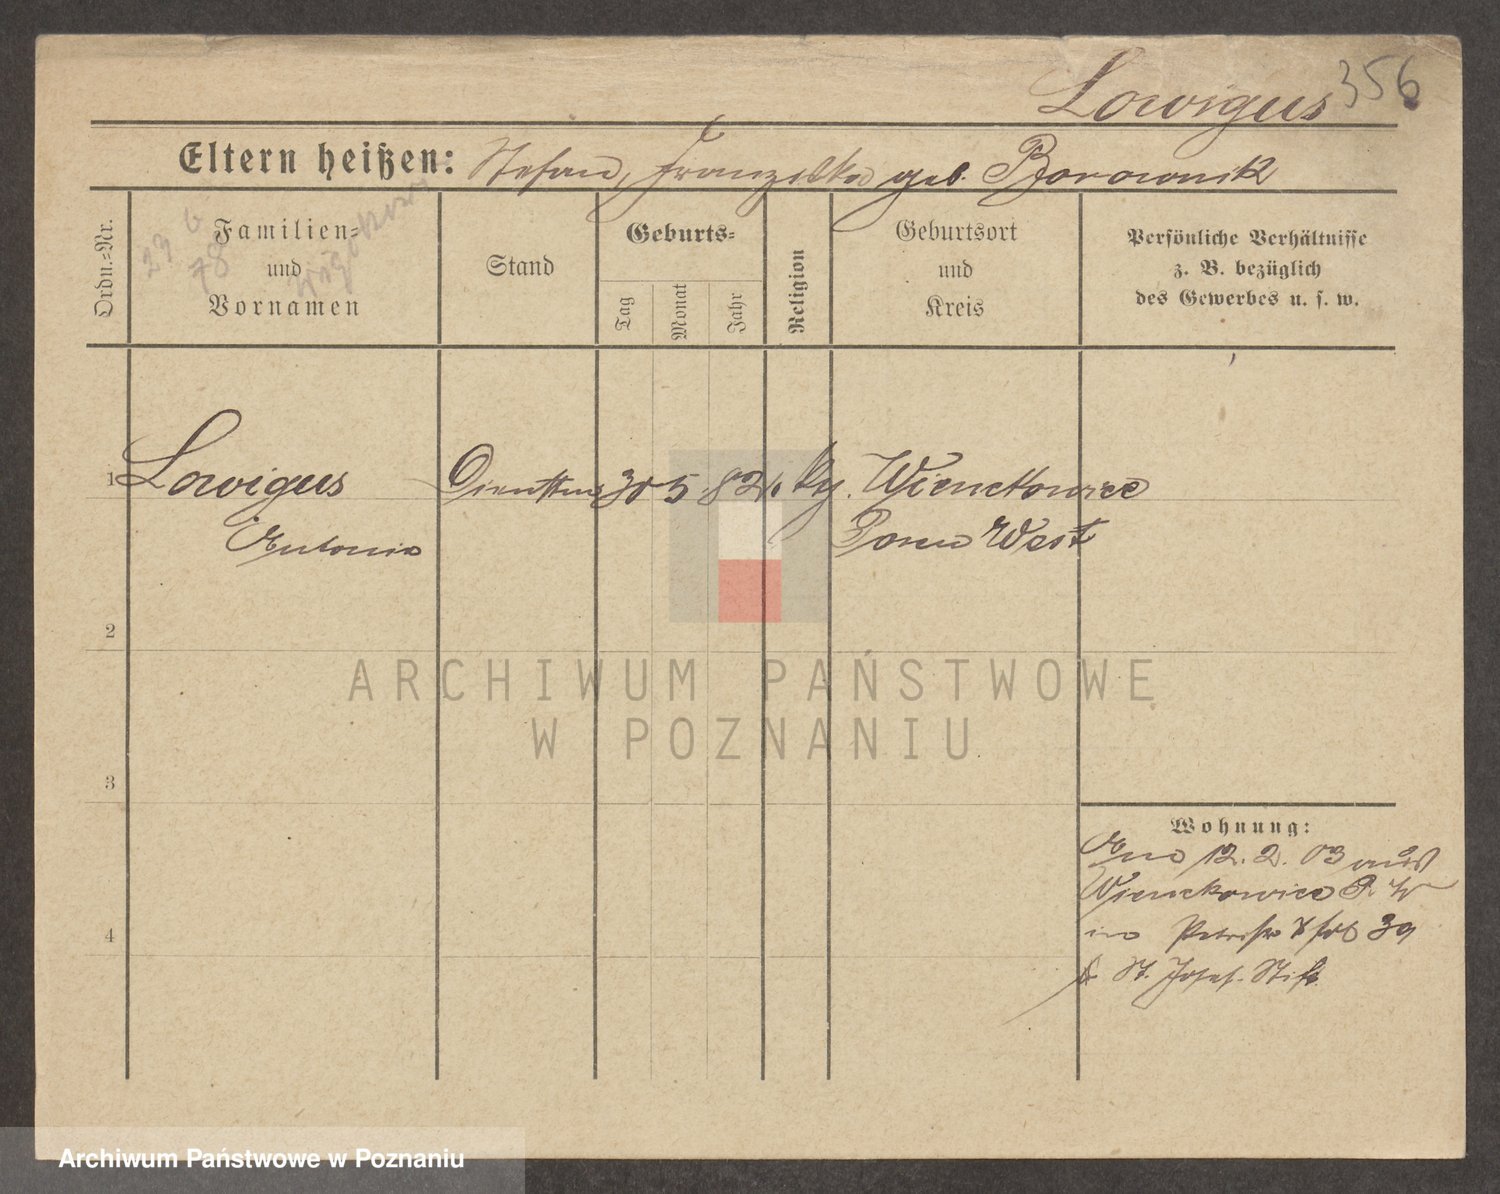 Lowigus 356
Eltern heißen: Stefan, Franziska geb. Borownik
Ordn.=Nr.
Familien=
und
Vornamen
Stand
Geburts=
Tag
Monat
Jahr
Religion
Geburtsort
und
Kreis
Persönliche Verhältnisse
z. B. bezüglich
des Gewerbes u. s. w.
29 6
78
1 Lowigus 30 5 82 Wienckowice
Antonie Posen West
2
3
4
Wohnung:
12. 2. 03 aus
Wienckowice P. W
39
St. Josef. Stift
ARCHIWUM PAŃSTWOWE
W POZNANIU
Archiwum Państwowe w Poznaniu